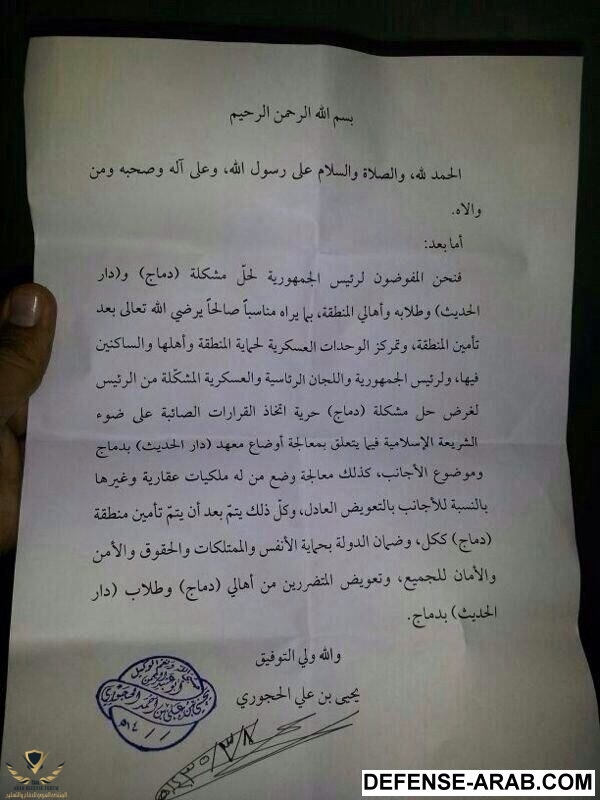 بسم الله الرحمن الرحيم
الحمد لله، والصلاة والسلام على رسول الله، وعلى آله وصحبه ومن
والاه.
أما بعد:
فنحن المفوضون لرئيس الجمهورية لحلّ مشكلة (دماج) و(دار
الحديث) وطلابه وأهالي المنطقة، بما يراه مناسباً صالحاً يرضي الله تعالى بعد
تأمين المنطقة، وتمركز الوحدات العسكرية لحماية المنطقة وأهلها والساكنين
فيها، ولرئيس الجمهورية واللجان الرئاسية والعسكرية المشكّلة من الرئيس
لغرض حل مشكلة (دماج) حرية اتخاذ القرارات الصائبة على ضوء
الشريعة الإسلامية فيما يتعلق بمعالجة أوضاع معهد (دار الحديث) بدماج
وموضوع الأجانب، كذلك معالجة وضع من له ملكيات عقارية وغيرها
بالنسبة للأجانب بالتعويض العادل، وكلّ ذلك يتمّ بعد أن يتمّ تأمين منطقة
(دماج) ككل، وضمان الدولة بحماية الأنفس والممتلكات والحقوق والأمن
والأمان للجميع، وتعويض المتضررين من أهالي (دماج) وطلاب (دار
الحديث) بدماج.
والله ولي التوفيق
يحيى بن علي الحجوري
أبو عبدالرحمن
يحيى بن علي بن أحمد الحجوري
DEFENSE-ARAB.COM